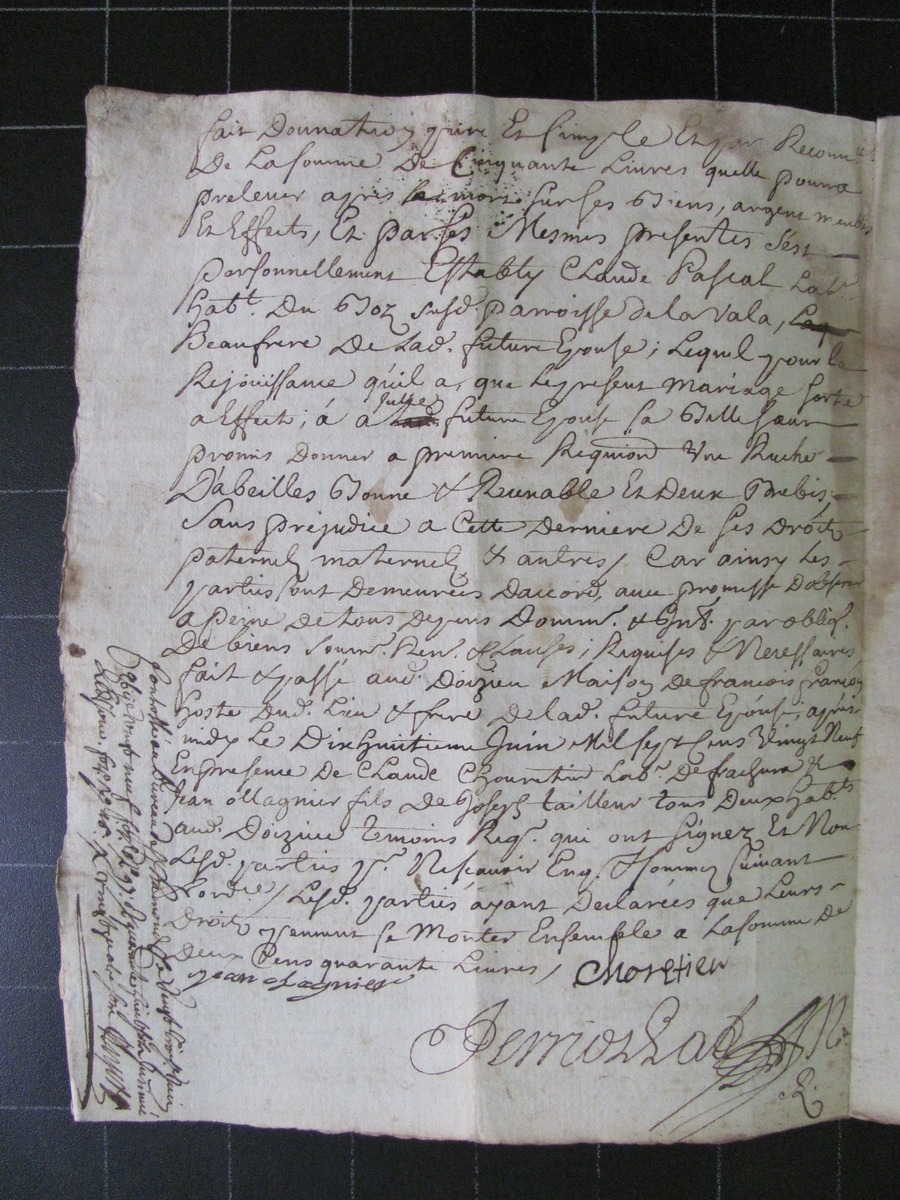 fait Donnation pure Et simple Et par Reconn.ce
De La somme De Cinquante Livres quelle pourra
prelever apres sa mort sur ses Biens, argent meubles
Et Effects, Et par ses Mesmes presentes s'est
personnellement Estably Claude Pascal Lab.r
hab.t Du Boz susd. parroisse de la Vala,
Beaufrere De Lad. future Epouse; Lequel pour la
Rejouissance qu'il a, que Le present mariage sorte
a Effect; á a Jullie future Epouse sa Belle sœur
promis donner a premiere Requion Une Ruche
D'abeilles Bonne & Recevable Et Deux Brebis,
sans prejudice a Cette Derniere De ses Droits
paternels maternels & autres / Car ainsy Les
parties sont Demeurées Daccord, avec promesse D'observer
a peine De tous Depens Domm. & Ints. par obliq.
De biens soum. Ren. & Clauses; Requises & Necessaires
fait & passé aud. Doizieu Maison De francois francon
hoste dud. Lieu & frere De lad. future Epouse; apres
midy Le Dixhuitieme Juin Mil sept Cens Vingt Neuf
En presence De Claude Lab.r De &
Jean ollagnier fils De Joseph tailleur tous Deux hab.ts
aud. Doizieu temoins Req. qui ont signez Et Non
Lesd. parties p.r Ne scavoir Enq. & sommez suivant
Lord.ce / Lesd. parties ayant Declarées que Leurs
Droits peuvent se Monter Ensemble a La somme de
Deux Cens quarante Livres /
Jean olagnier
Controllé au Bureau de S.t Chamond Le Vingt Juin